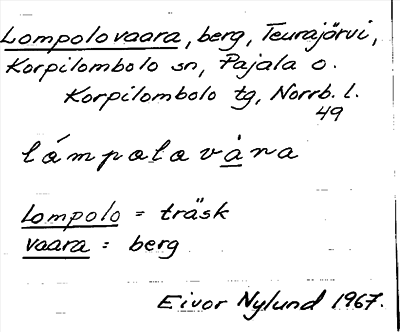 Lompolovaara, berg, Teurajärvi,
Korpilombolo sn, Pajala o.
Korpilombolo tg, Norrb. l.
49
lámpolovàra
Lompolo = träsk
vaara = berg
Eivor Nylund 1967.